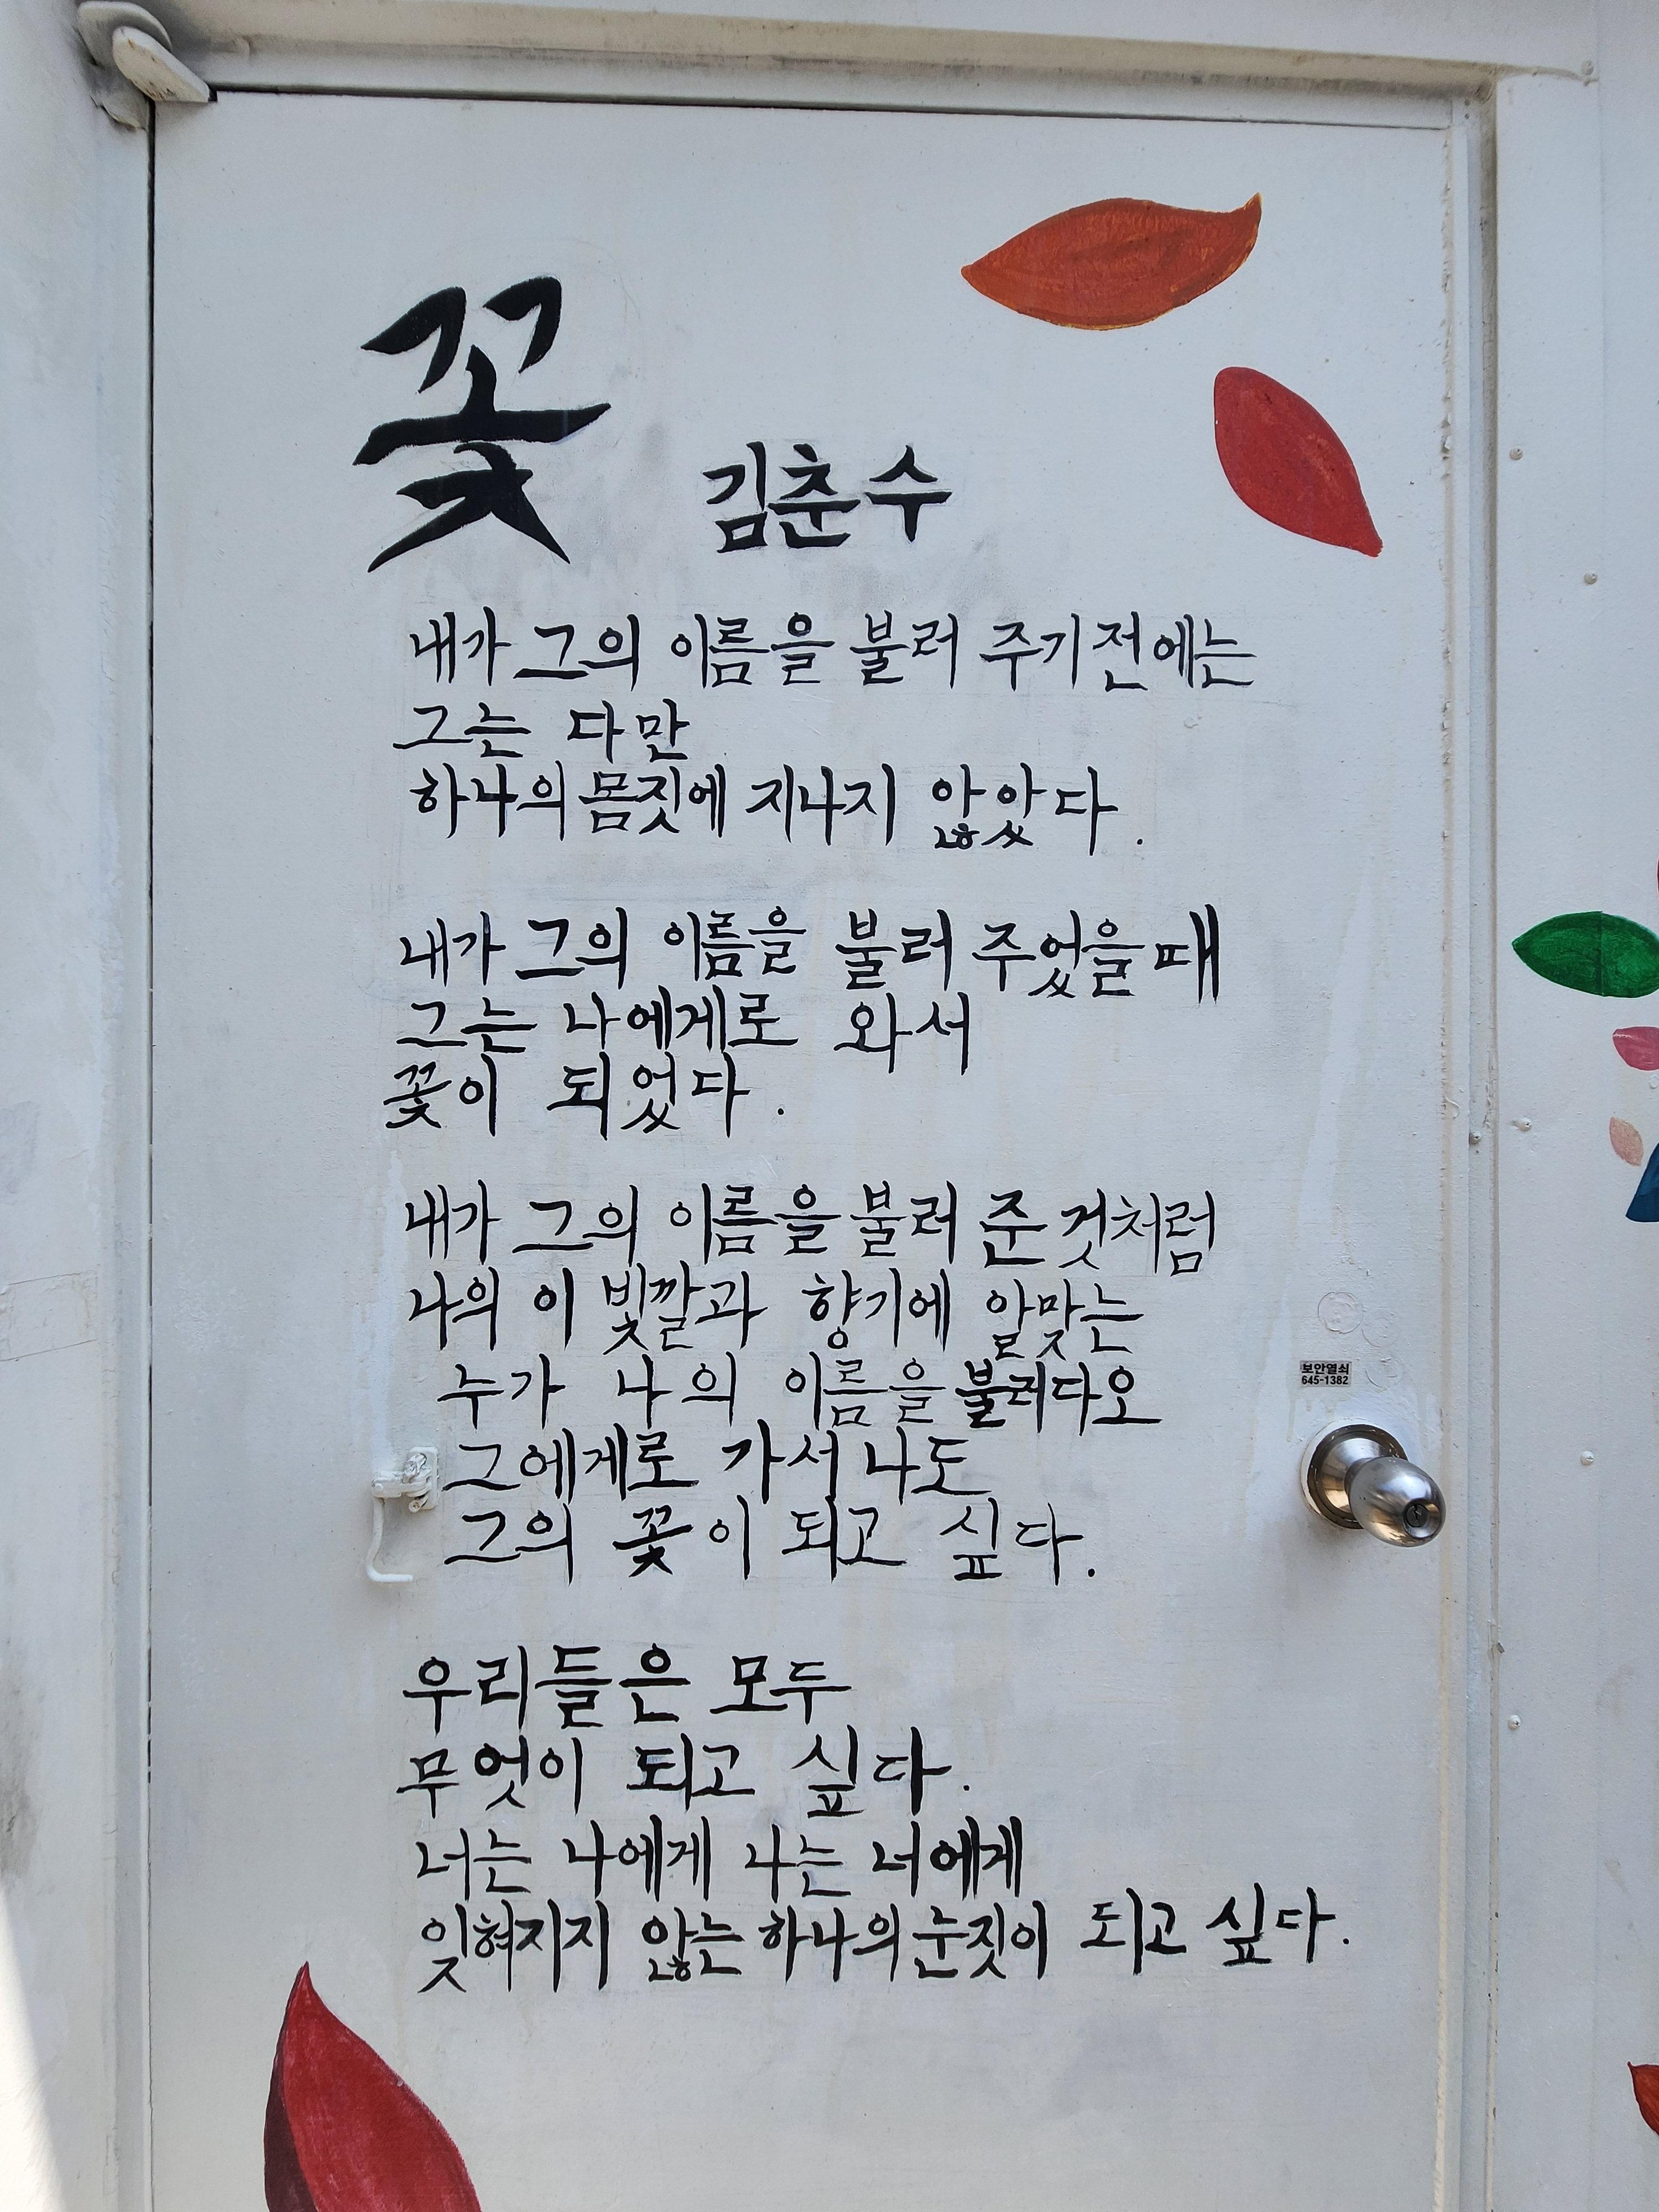 꽃
김춘수
내가 그의 이름을 불러 주기전에는
그는 다만
하나의 몸짓에 지나지 않았다.
내가 그의 이름을 불러 주었을때
그는 나에게로 와서
꽃이 되었다.
내가 그의 이름을 불러 준 것처럼
나의 이 빛깔과 향기에 알맞는
누가 나의 이름을 불러다오
그에게로 가서 나도
그의 꽃이 되고 싶다.
우리들은 모두
무엇이 되고 싶다.
너는 나에게 나는 너에게
잊혀지지 않는 하나의 눈짓이 되고 싶다.
보안열쇠
645-1382